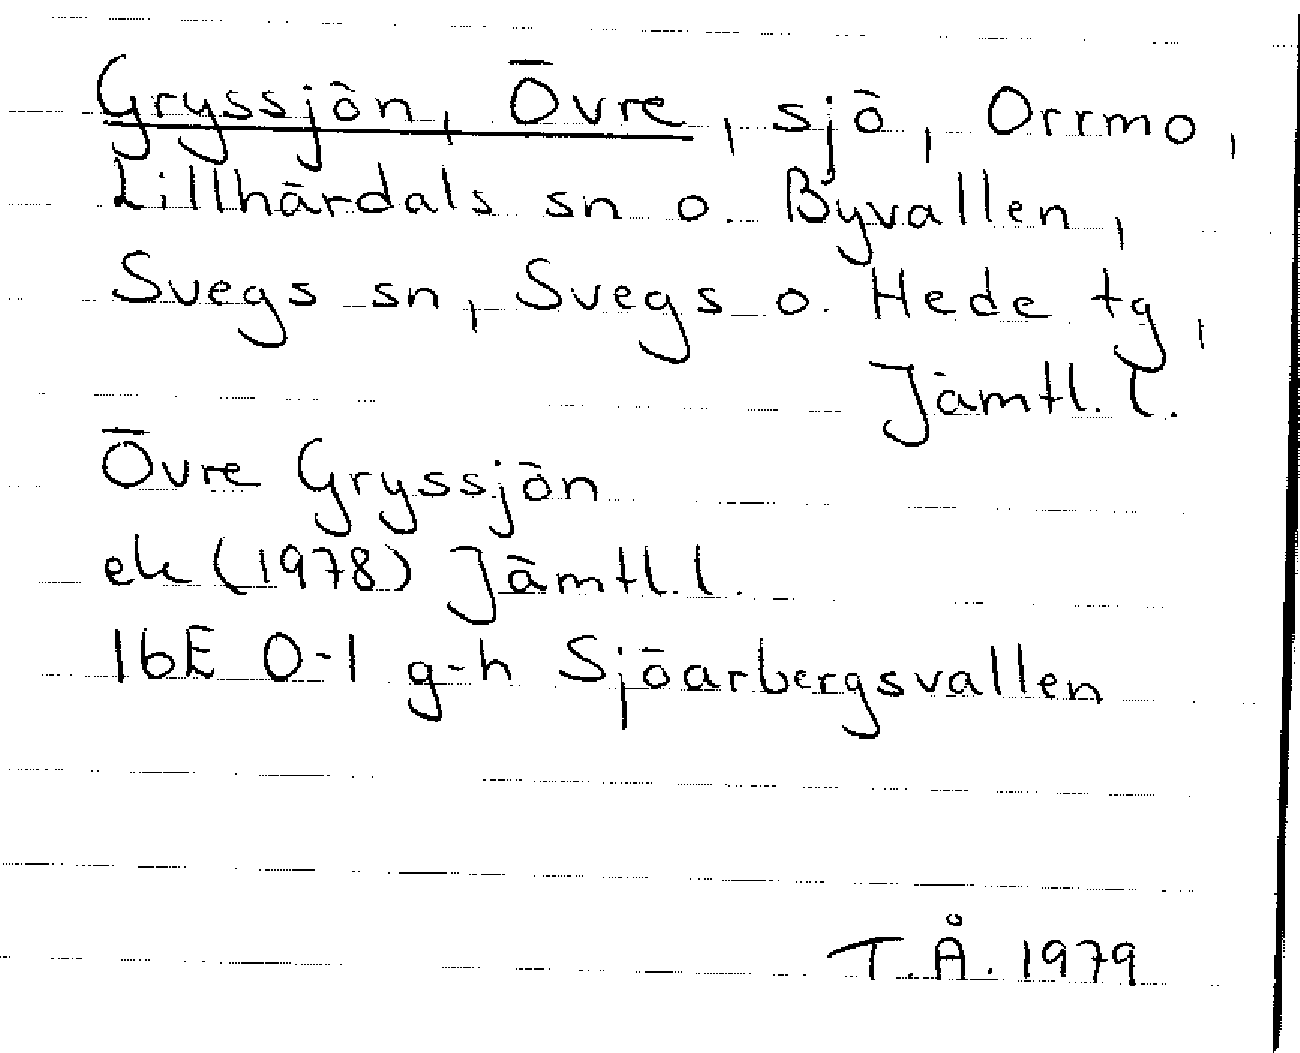 Gryssjön, Övre, sjö, Orrmo,
Lillhärdals sn o. Byvallen,
Svegs sn, Svegs o. Hede tg,
Jämtl. l.
Övre Gryssjön
ek (1978) Jämtl. l.
16E 0-1 g-h Sjöarbergsvallen
T.Å. 1979